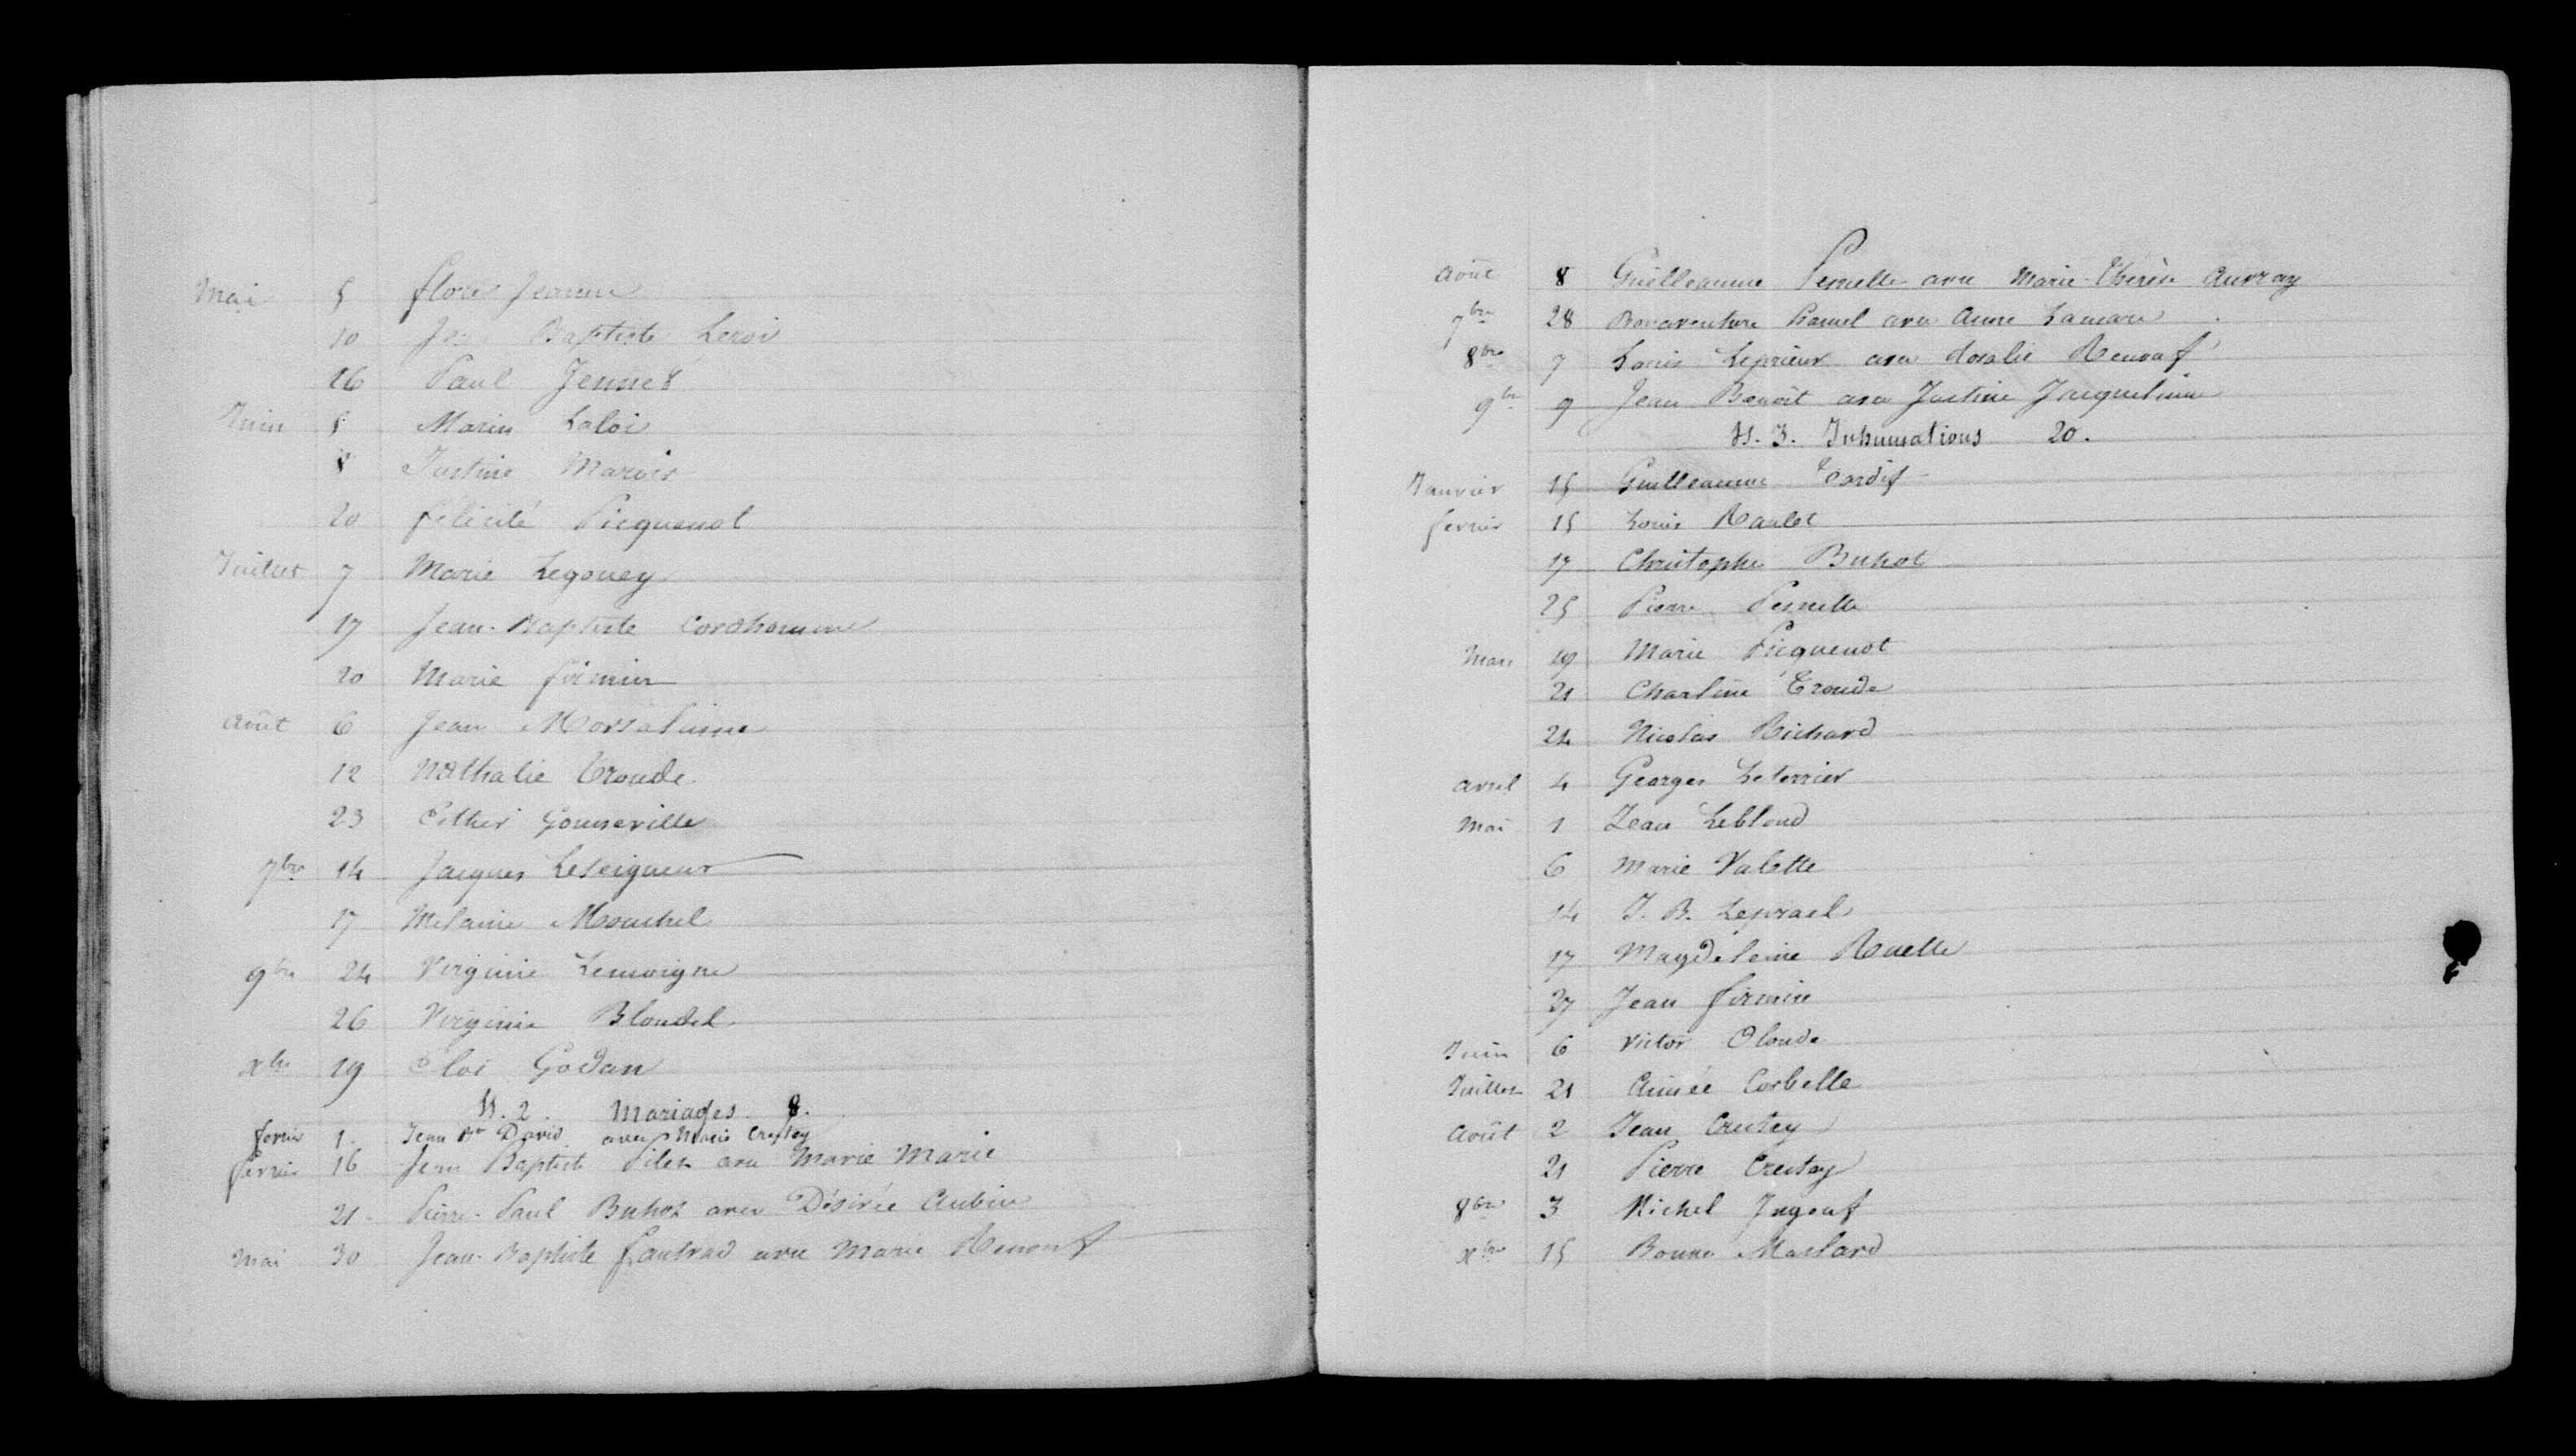 Mai 5 flore Jeanne
10 Baptiste Leroi
26 Paul Jennet
Juin 5 Marin Laloi
8 Justine Marois
20 félicité Picquenot
Juillet 7 Marie Legouey
17 Jean-Baptiste Cordhomme
20 Marie firmin
Août 6 Jean Morsalinne
12 Nathalie Troude
23 Esther Gonneville
7bre 14 Jacques Leseigneur
17 Melanie Mouchel
9bre 24 Virginie Lemoigne
26 Virginie Blondel
Xbre 19 Eloi Godan
§§. 2. Mariages. 8.
fevrier 1. Jean Bte David avec Marie Crestey
fevrier 16 Jean Baptiste avec Marie Marie
21 Pierre-Paul Buhot avec Désirée Aubin
Mai 30 Jean-Baptiste fautrad avec Marie Renouf
Août 8 Guilleaume Pernelle avec Marie-Thérèse Auvray
7bre 28 Bonaventure avec Anne Lamare
8bre 7 Louis Leprieur avec Rosalie Renouf
9bre 9 Jean Benoît avec Justine Jacquelinne
§§. 3. Inhumations 20.
Janvier 15 Guilleaume Tardif
fevrier 15 Louis Raulet
17 Christophe Buhot
25 Pierre Pernelle
Mars 19 Marie Picquenot
21 Charline Troude
24 Nicolas Richard
Avril 4 Georges Leterrier
Mai 1 Jean Leblond
6 Marie Valette
14 J. B. Lesrael
17 Magdeleine Ruelle
27 Jean firmin
Juin 6 Victor Olonde
Juillet 21 Aimée Corbelle
Août 2 Jean Crestey
21 Pierre Crestey
8bre 3 Michel Ingouf
Xbre 15 Bonne Maslard